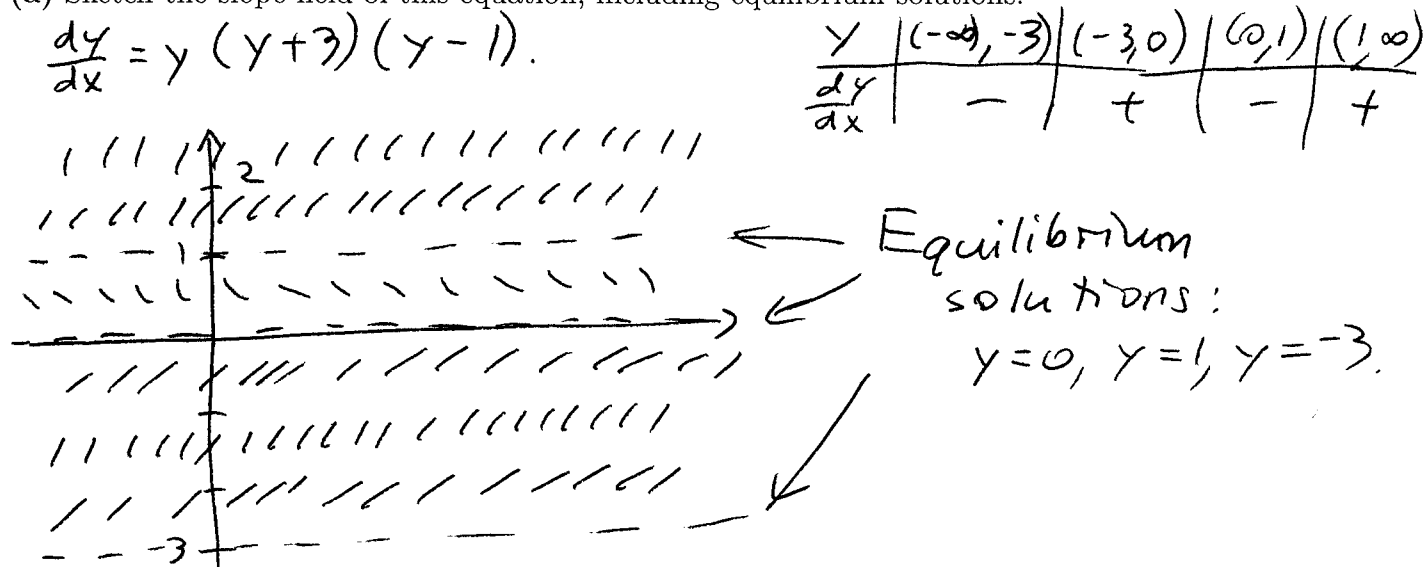 (a) Sketch the slope field of this equation, including equilibrium solutions.
dy/dx = y (y+3)(y-1).
y | (-∞), -3) | (-3,0) | (0,1) | (1,∞)
dy/dx | - | + | - | +
2
1
-3
Equilibrium
solutions:
y=0, y=1, y=-3.